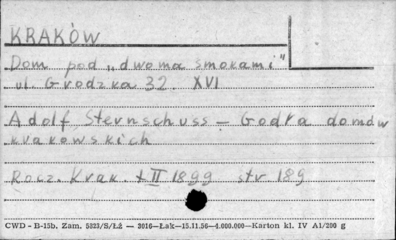 KRAKÓW
Dom pod „dwoma smokami"
ul. Grodzka 32. XVI
Adolf Sternschuss – Godła domów
krakowskich
Rocz. Krak. t II 1899 str 189
CWD - B-15b, Zam. 5823/S/Łż — 2010—Łak—15.11.56—4.000.000—Karton kl. IV A1/200 g